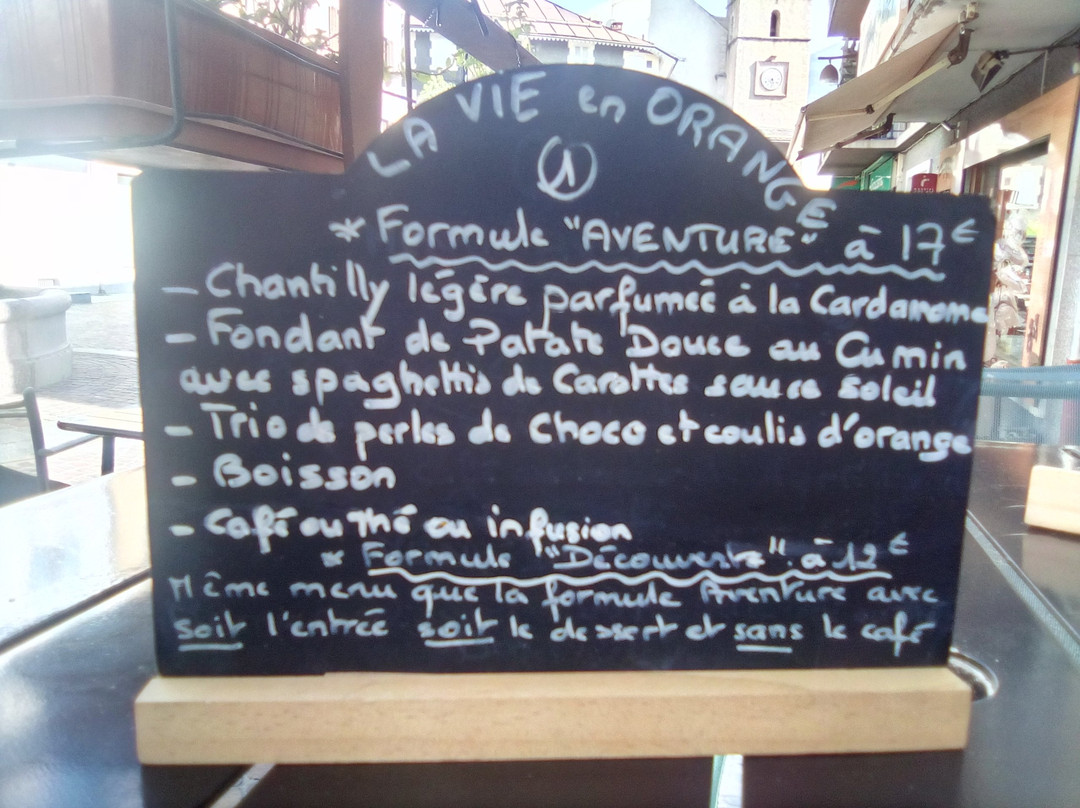 LA VIE en ORANGE
1
* Formule "AVENTURE" à 17€
- Chantilly légère parfumée à la Cardamome
- Fondant de Patate Douce au Cumin
avec spaghettis de Carottes sauce soleil
- Trio de perles de Choco et coulis d'orange
- Boisson
- Café ou thé ou infusion
* Formule "Découverte" à 12€
Même menu que la formule Aventure avec
soit l'entrée soit le dessert et sans le café